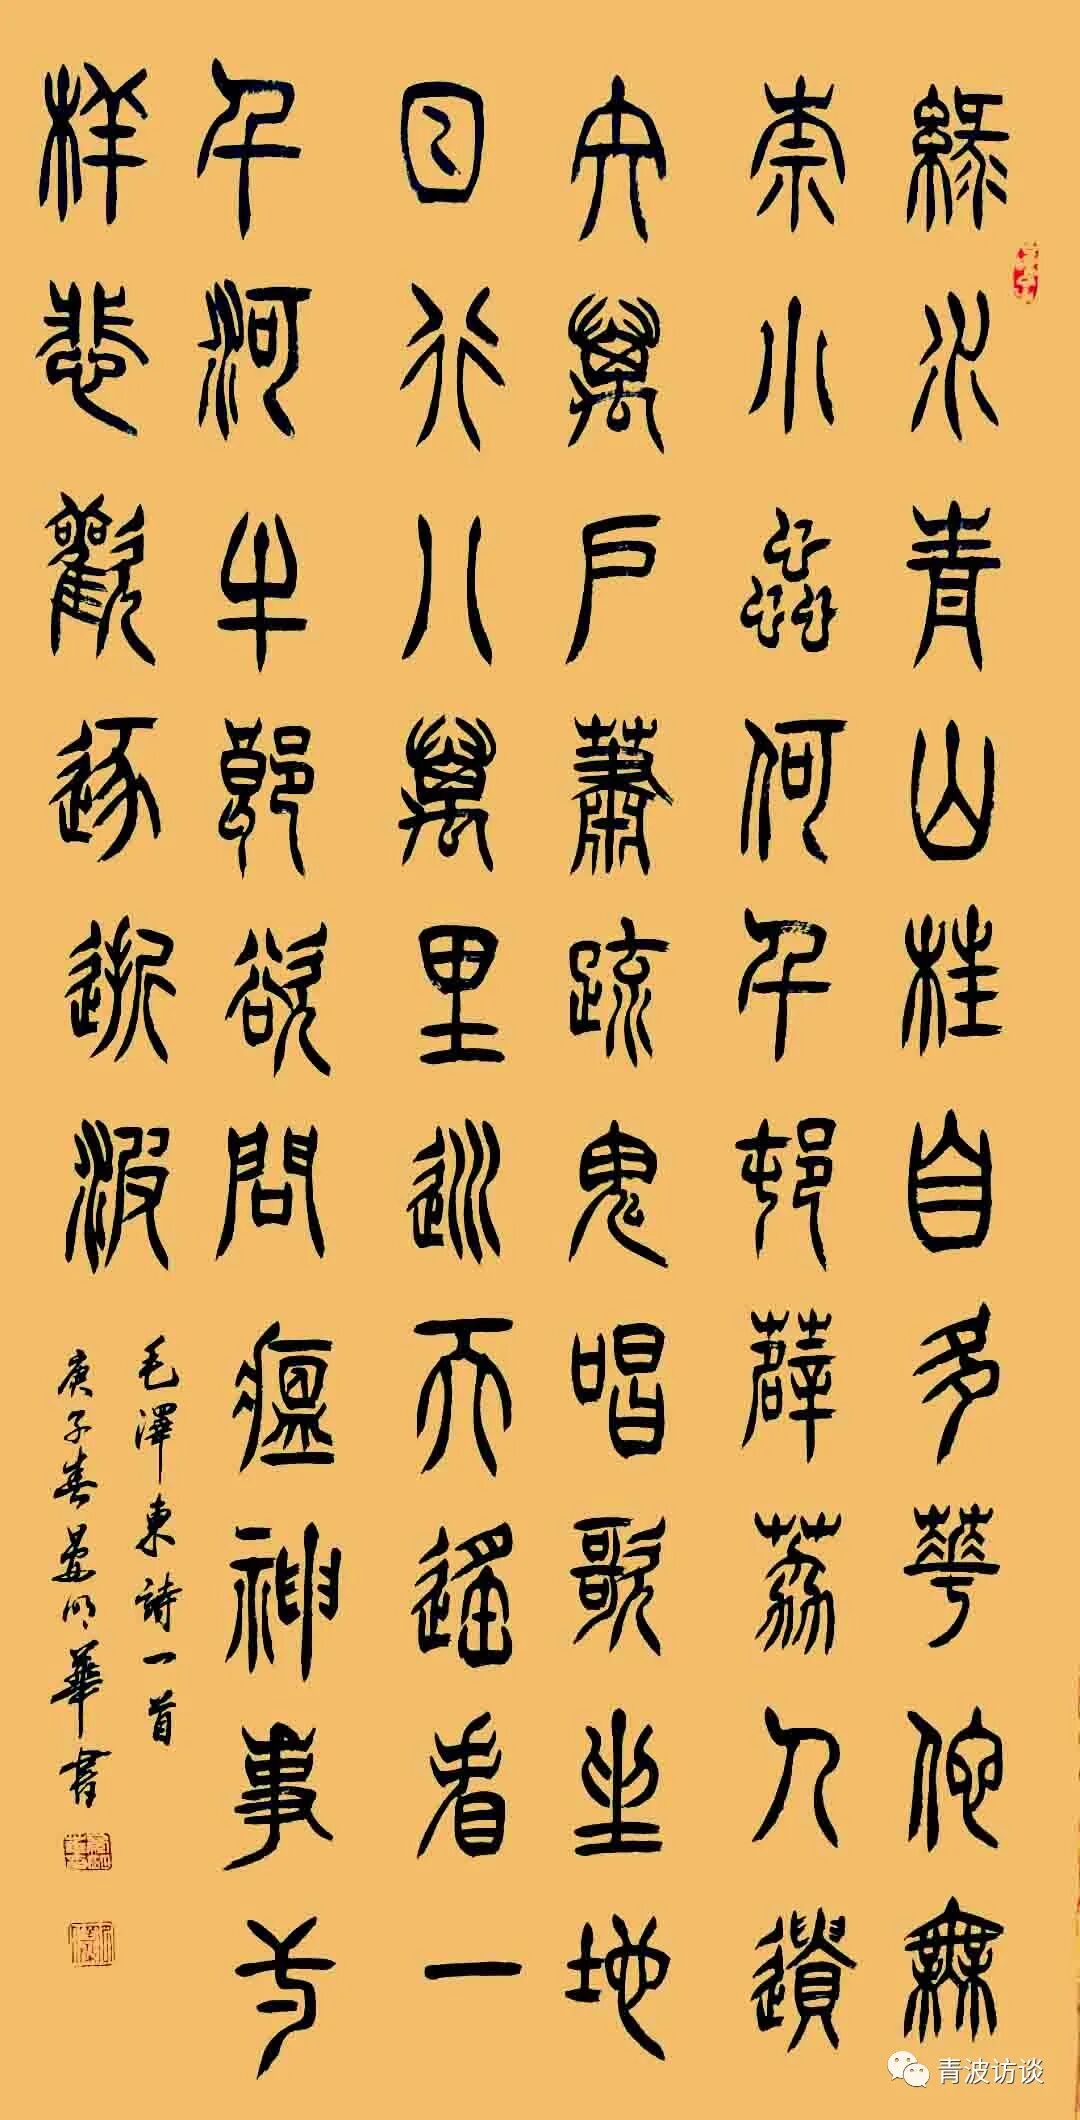 綠水青山枉自多華佗無
奈小蟲何千邨薜荔人遺
矢萬戶蕭疏鬼唱歌坐地
日行八萬里巡天遙看一
千河牛郎欲問瘟神事
样悲歡逐逝波
毛澤東詩一首
庚子春晏明華書
青波访谈